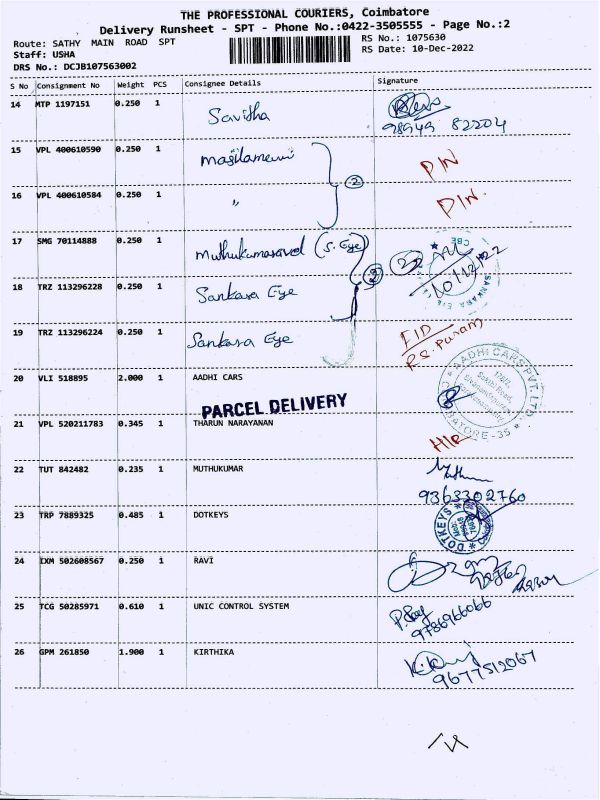 THE PROFESSIONAL COURIERS, Coimbatore
Delivery Runsheet - SPT - Phone No.:0422-3505555 - Page No.:2
Route: SATHY MAIN ROAD SPT
RS No.: 1075630
Staff: USHA
RS Date: 10-Dec-2022
DRS No.: DCJB107563002
S No Consignment No Weight PCS Consignee Details Signature
14 MTP 1197151 0.250 1 Savitha
98949 82204
15 VPL 400610590 0.250 1 masilamani PIN
2
16 VPL 400610584 0.250 1 " PIN.
17 SMG 70114888 0.250 1 muthukumaravel (S. Eye)
CBE
10/12/22
18 TRZ 113296228 0.250 1 Sankara Eye
SANKARA EYE
19 TRZ 113296224 0.250 1 Sankara Eye
R.S. Puram
20 VLI 518895 2.000 1 AADHI CARS
AADHI CARS PVT LTD.
Sathy Road,
PARCEL DELIVERY
21 VPL 520211783 0.345 1 THARUN NARAYANAN
22 TUT 842482 0.235 1 MUTHUKUMAR
9363302760
23 TRP 7889325 0.485 1 DOTKEYS
DOTKEYS
24 IXM 502608567 0.250 1 RAVI
25 TCG 50285971 0.610 1 UNIC CONTROL SYSTEM
9786966066
26 GPM 261850 1.900 1 KIRTHIKA
9677512067